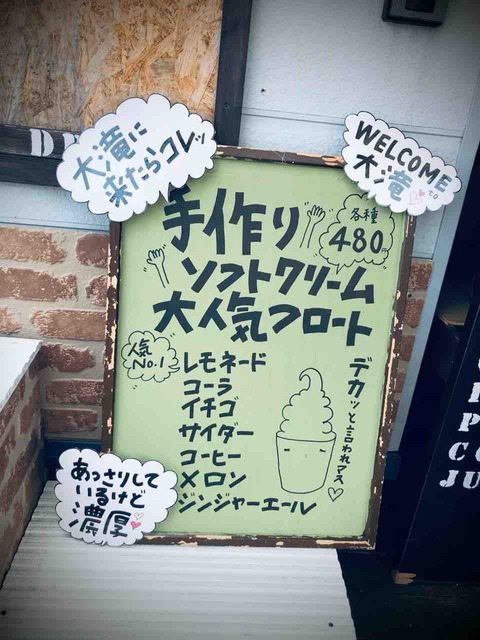 大滝に
来たらコレッ
WELCOME
to
大滝
手作り
各種
480
ソフトクリーム
大人気フロート
人気
No.1
レモネード
コーラ
イチゴ
サイダー
コーヒー
メロン
ジンジャーエール
デカッと言われマス
あっさりして
いるけど
濃厚